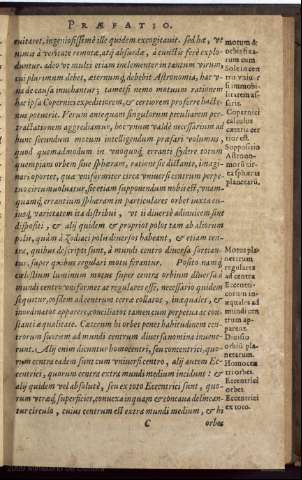 PRÆFATIO.
euitaret, ingeniosissimè ille quidem excogitauit. sed hæ, vt
nimis à veritate remotæ, atq; absurdæ, à cunctis ferè explo-
duntur. adeo vt multi etiam inclementer in tantum virum,
cui plurimum debet, æternumq; debebit Astronomia, hac v-
na de causa inuehantur; tametsi nemo motuum rationem
hac ipsa Copernici expeditiorem, & certiorem proferre hacte-
nus potuerit. Verum antequam singulorum peculiarem per-
tractationem aggrediamur, hoc vnum valdè necessarium ad
hunc secundum motum intelligendum præfari volumus,
quod quemadmodum in vnoquoq; erranti sydere totum
quempiam orbem siue sphæram, ratione sic dictante, imagi-
nari oportet, quæ vniformiter circa vniuersi centrum perpe-
tuo circumuoluatur, sic etiam supponendum nobis est, vnam-
quamq; errantium sphæram in particulares orbes iuxta cu-
iusq; varietatem ita distribui, vt ij diuersè adinuicem sint
dispositi, & alij quidem & proprios polos tam ab aliorum
polis, quàm à Zodiaci polis diuersos habeant, & etiam cen-
tra, quibus descripti sunt, à mundi centro diuersa sortian-
tur, super quibus regulari motu ferantur. Posito namq;
cælestium luminum motus super centra orbium diuersa à
mundi centro vniformes ac regulares esse, necessario quidem
sequitur, eosdem ad centrum terræ collatos, inæquales, &
inordinatos apparere, conciliatos tamen cum perpetua ac con-
stanti æqualitate. Cæterum hi orbes penes habitudinem cen-
trorum suorum ad mundi centrum diuersa nomina inueni-
runt. Alij enim dicuntur homocentri, seu concentrici, quo-
rum centra eadem sunt cum vniuersi centro, alij autem Ec-
centrici, quorum centra extra mundi medium incidunt: &
alij quidem vel absolutè, seu ex toto Eccentrici sunt, quo-
rum vtraq; superficies, conuexa inquam & concaua delinean-
tur circulo, cuius centrum est extra mundi medium, & hi
C orbes
motum &
orbis situ-
rum cum
Sole in cen-
tro vniuer-
si immobi-
litatem as-
serit.
Copernici
calculus
cæteris cer-
tior est.
Suppositio
Astrono-
morum cir-
ca sphæras
planetarū.
Motus pla-
netarum
regulares
ad centra
Eccentri-
corum inæ-
quales ad
mundi cen-
trum ap-
parent.
Diuisio
orbiū pla-
netarum.
Homocen-
tri orbes.
Eccentrici
orbes.
Eccentrici
ex toto.